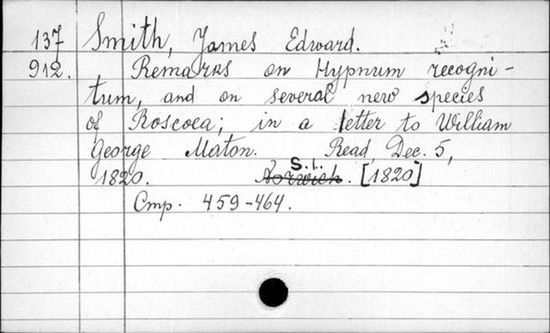 137 Smith, James Edward.
912. Remarks on Hypnum recogni-
tum, and on several new species
of Roscoea; in a letter to William
George Maton. Read, Dec. 5,
S.l.
1820. Norwich. [1820]
Стр. 459-464.